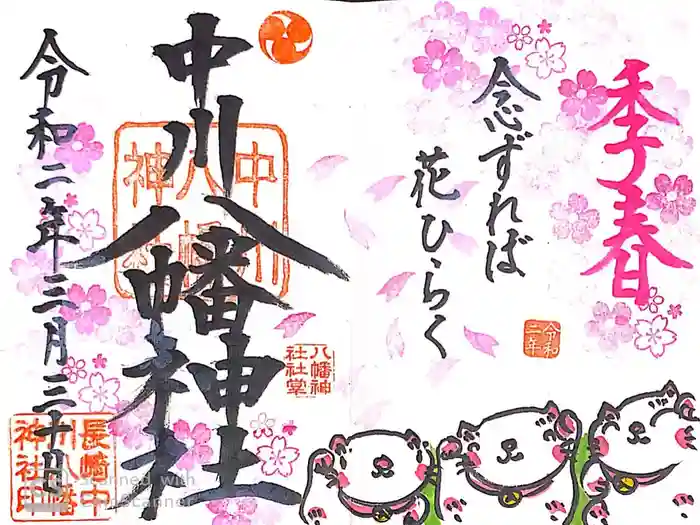 季春
念ずれば
花ひらく
令和
二年
中川八幡神社
中川
八幡
神社
八幡神
社社堂
令和二年三月三十日
長崎中
川八幡
神社印
scanned with
CamScanner